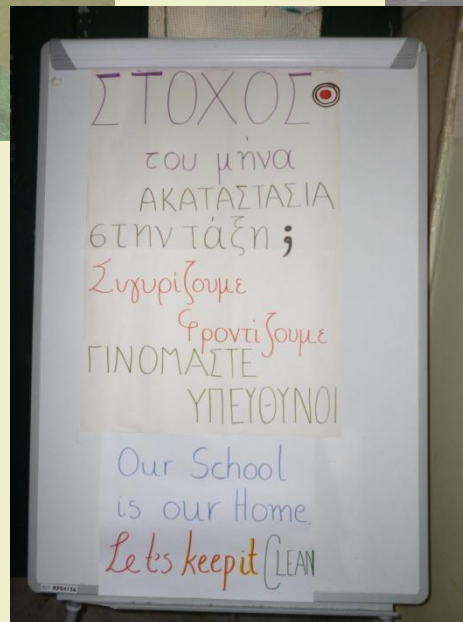 ΣΤΟΧΟΣ
του μήνα
ΑΚΑΤΑΣΤΑΣΙΑ
στην τάξη ;
Συγυρίζουμε
Φροντίζουμε
ΓΙΝΟΜΑΣΤΕ
ΥΠΕΥΘΥΝΟΙ
Our School
is our Home.
Let's keep it CLEAN